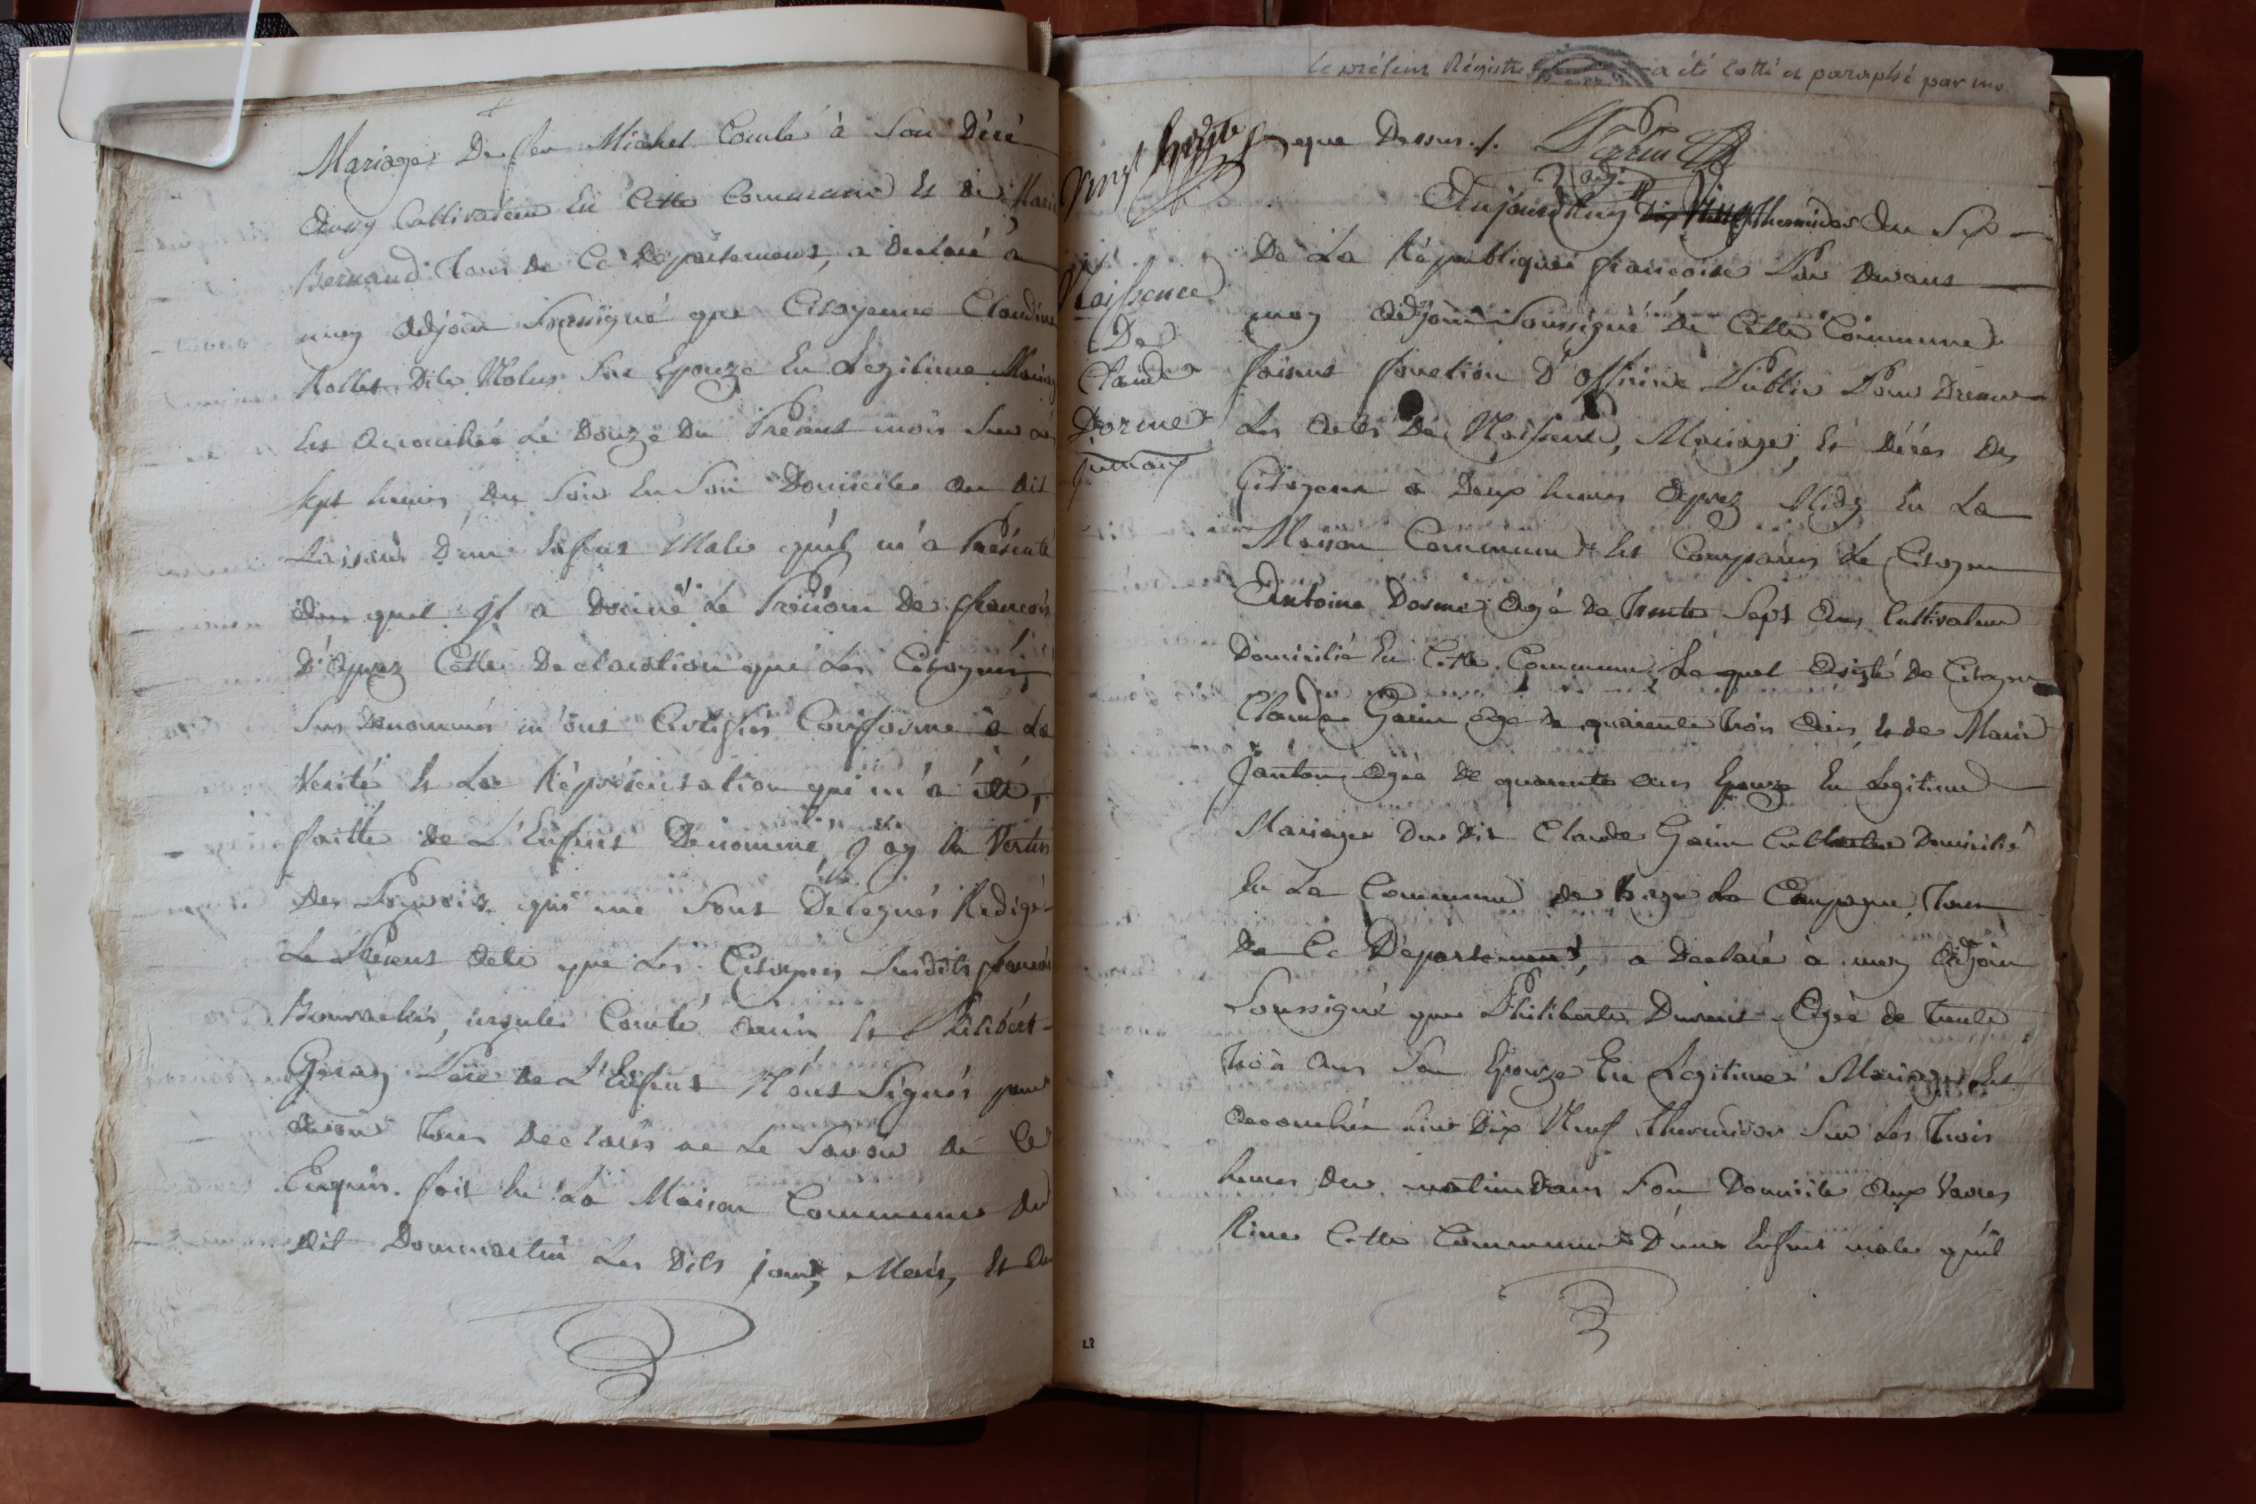 Mariage De feu Michel Comte à Son Décé
Cultivateur En Cette Commune Et de Marie
Bernand Tous De Ce Département, a Declaré à
moy adjoin Soussigné que Citoyenne Claudine
Rollet Dite Son Epouze En Legitime Mariag
Est Accouchée Le Douze Du Présent mois Sur les
Sept heures Du Soir En Son Domicile au dit
D'une Enfant Male qu'il m'a Présenté
Au quel Il a Donné Le Prénom De françois
D'Aprez Cette Declaration que Les Citoyens
Sus Denommés m'ont Certifiés Conforme à La
Verité Et La Répresentation qui m'a été
faitte de L'Enfant Denommé, J'ay En Vertus
Des Pouvoirs qui me Sont Délegués Rédigé
Le Présent Acte que Les Citoyens Susdits françois
Comte Et Philibert
Père De L'Enfant N'ont Signés pour
avoir Tous Declarés ne Le Savoir de Ce
Enquis. fait En La Maison Commune du
dit Dommartin Les Dits jour, Mois, Et An
Le présent Régistre a été cotté et paraphé par
que Dessus ./. Perrin
adj.
Aujourdhuy thermidor An Sept
De La République françoise Par Devant
moy adjoint Soussigné De Cette Commune
faisant fonction D'Officier Public Pour Dresser
Les Actes De Naissence, Mariage, Et Décès Des
Citoyens à Deux heures Aprez Midy En La
Maison Commune Est Comparus Le Citoyen
Antoine Dorme Agé de Trente Sept Ans Cultivateur
Domicilié En Cette Commune, Le quel Asisté de Citoyen
Claude Gacin agé de quarente trois Ans Et de Marie
Janton Agée de quarente ans Epouze En Legitime
Mariage Du dit Claude Gacin Cultivateur Domicilié
En La Commune de La Campagne Tous
De Ce Département, a Declaré à moy Adjoin
Soussigné que Philiberte Agée de trente
trois Ans Son Epouze En Legitime Mariage Est
accouchée hier Dix Neuf thermidor Sur Les Trois
heures Du matin dans Son Domicile Aux
Cette Commune D'une Enfant male qu'il
Naissence
De
Claude
Dorme